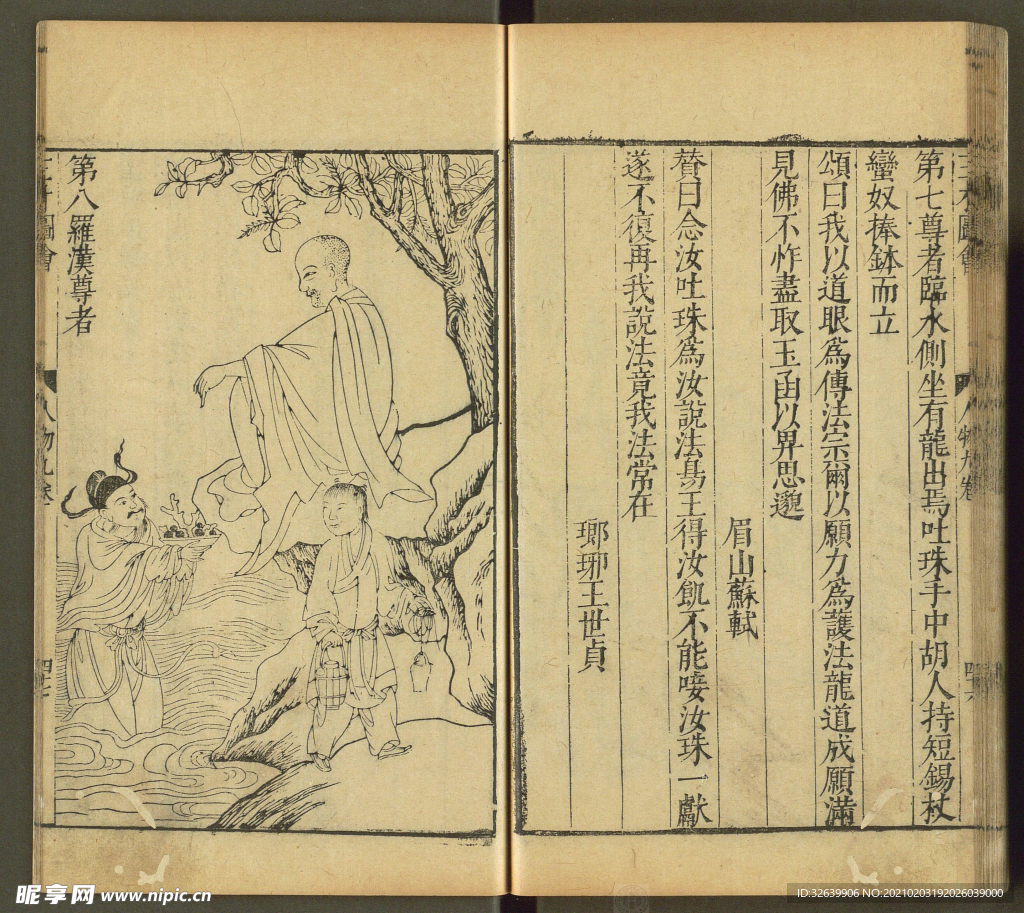 三才圖會
人物九卷
四十六
第七尊者臨水側坐有龍出焉吐珠手中胡人持短錫杖
蠻奴捧鉢而立
頌曰我以道眼爲傳法宗爾以願力爲護法龍道成願滿
見佛不怍盡取玉函以畀思邈
眉山蘇軾
贊曰念汝吐珠爲汝說法曷王得汝飢不能唼汝珠一獻
遂不復再我說法竟我法常在
瑯琊王世貞
第八羅漢尊者
三才圖會
人物九卷
四十七
昵享网 www.nipic.cn
ID:32639906 NO:20210203192026039000